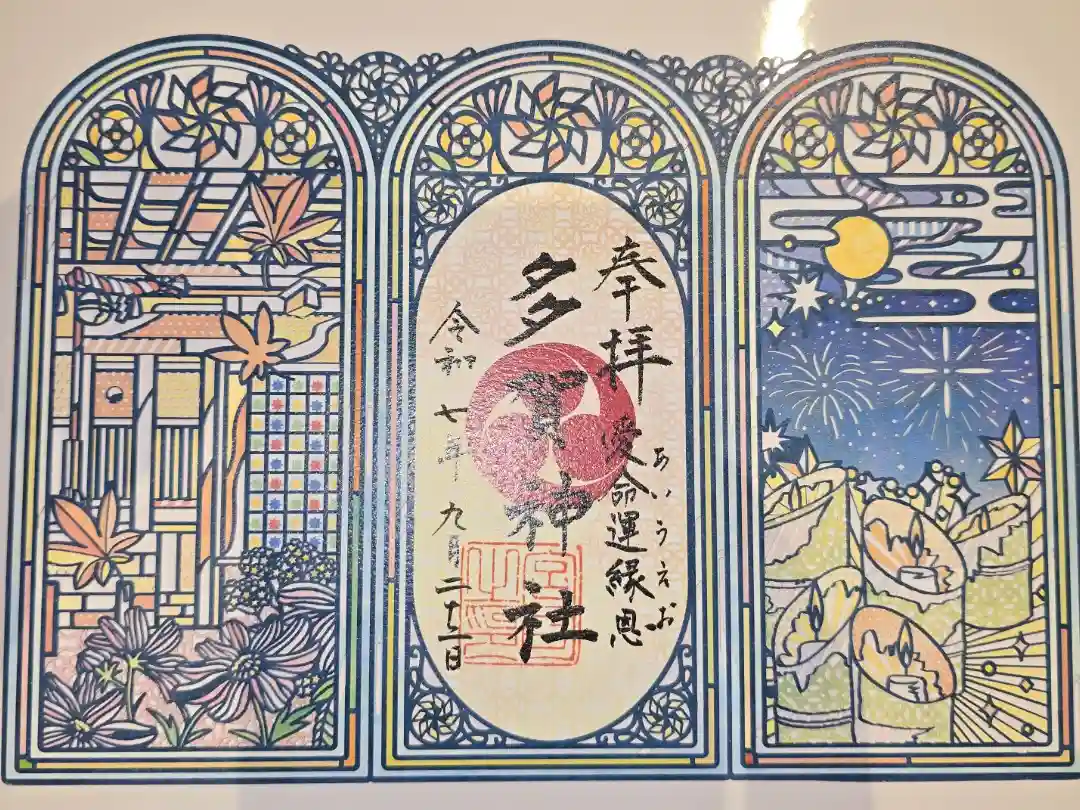 奉拝
愛命運縁恩
あいうえお
多賀神社
令和七年九月二十一日